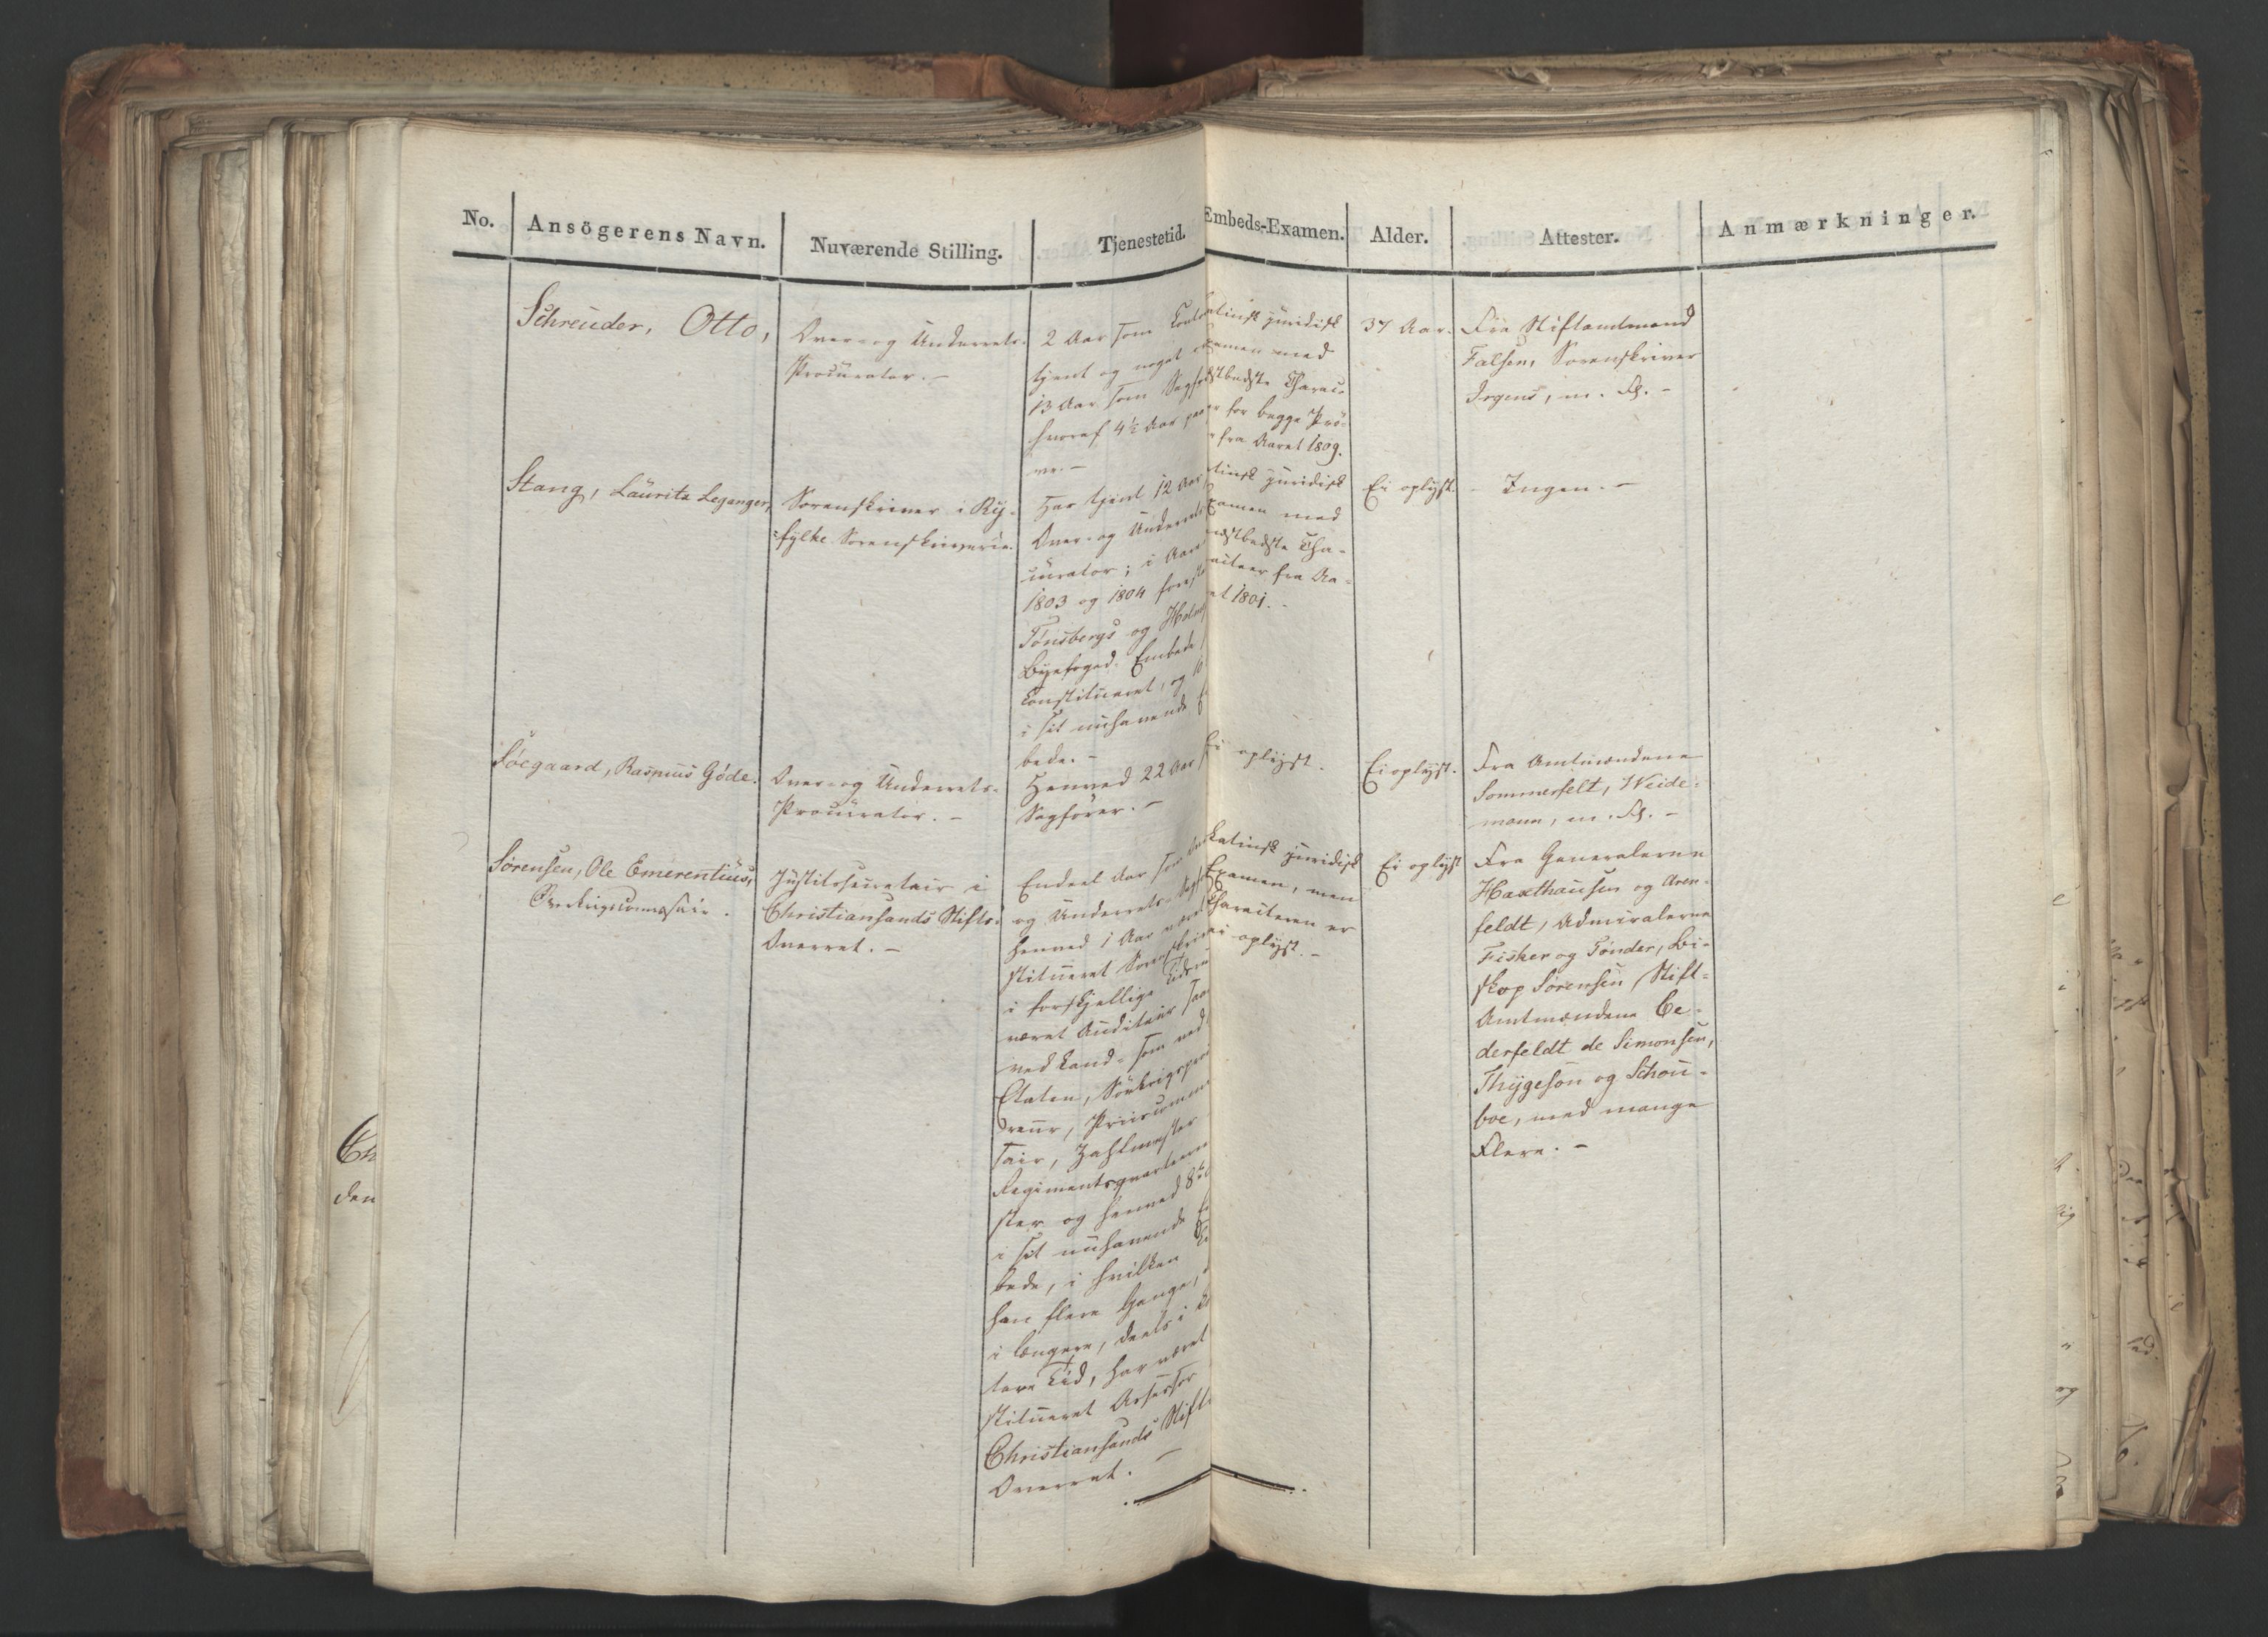 No.
Ansögerens Navn.
Nuværende Stilling.
Tjenestetid.
Embeds-Examen.
Alder.
Attester.
Anmærkninger.
Schreuder, Otto,
Over- og Underrets-
Procurator. -
2 Aar som
tjent og noget
13 Aar som
hvoraf 4½ Aar
Latinsk juridisk
Examen med
Charac-
for begge Prö-
fra Aaret 1809.
37 Aar.
Fra Stiftamtmand
Falsen, Sorenskriver
Irgens, m. Fl. -
Stang, Lauritz Leganger,
Sorenskriver i Ry-
fylke Sorenskriverie.
Har tjent 12 Aar
Over- og Underrets
curator; i Aare
1803 og 1804
Tönsbergs og
Byefoged-Embede
Constitueret, og
i sit nuhavende
bede. -
juridisk
Examen med
Cha-
fra Aa-
et 1801. -
Ei oplyst.
Ingen. -
Söegaard, Rasmus Göde.
Over- og Underrets-
Procurator. -
Henved 22 Aar
Sagförer. -
Ei oplyst.
Ei oplyst.
Fra Amtmændene
Sommerfelt, Weide-
mann, m. Fl. -
Sörensen, Ole Emerentius,
Overkrigscommissair.
Justitssecretair i
Christiansands Stifts-
Overret. -
Endeel Aar som
og Underrets-
henved 1 Aar
stitueret
i forskjellige Tider
været Auditeur
ved Land- som ved
Etaten,
Priiscommis
sair, Zahlmester
Regimentsqvarteerme
ster og henved 8te
i sit nuhavende
bede, i hvilken
han flere Gange,
i længere, deels i
tere Tid, har været
stitueret Assessor
Christiansands Stift
Overret. -
Latinsk juridisk
Examen, men
Characteren er
ei oplyst. -
Ei oplyst
Fra Generalerne
Haxthausen og Aren-
feldt, Admiralerne
Fisker og Tönder, Bi-
skop Sörensen, Stift-
Amtmændene Ce-
derfeldt de Simonsen,
Thygeson og Schou-
boe, med mange
Flere. -